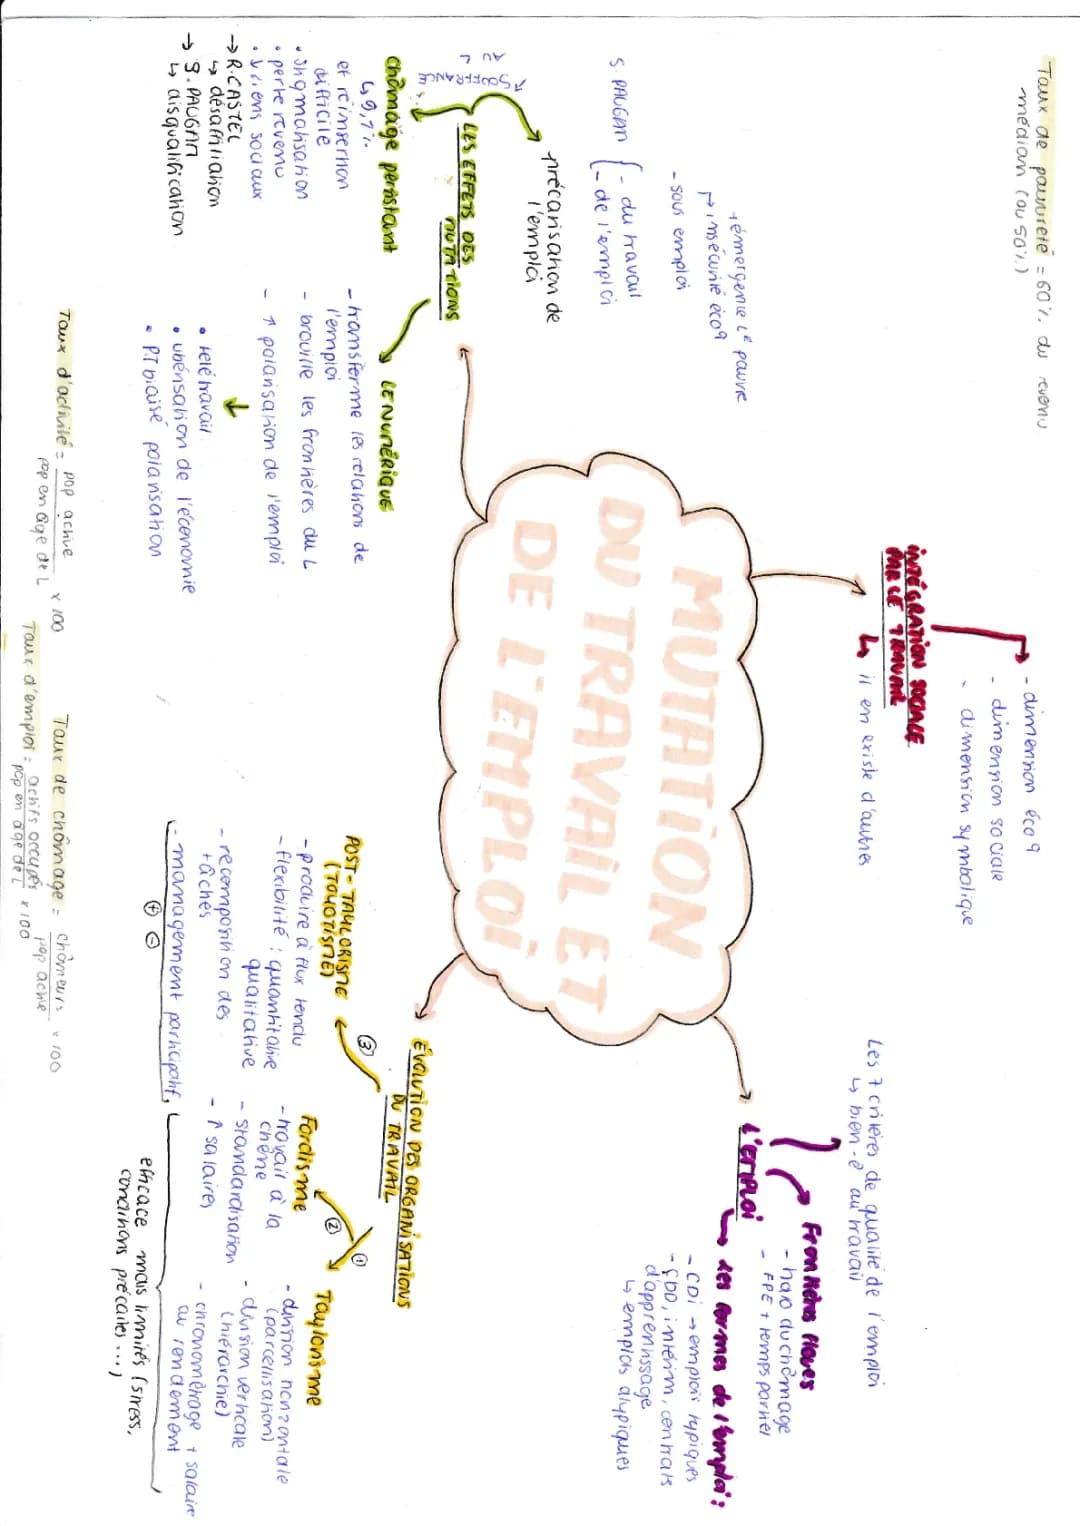 Taux de pauvreté = 60% du revenu
médian (ou 50%)
- dimension éco 9
- dimension sociale
- dimension symbolique
INTÉGRATION SOCIALE
PAR LE TRAVAIL
↳ il en existe d'autres
Les 7 critères de qualité de l'emploi
↳ bien-ê au travail
Frontières floues
- halo du chômage
- FPE + temps partiel
L'EMPLOI
→ Les formes de l'emploi :
- CDI → emplois typiques
- CDD, intérim, contrats
d'apprentissage
↳ emplois atypiques
MUTATION
DU TRAVAIL ET
DE L'EMPLOI
+émergence L^e pauvre
↱ insécurité éco9
- sous emploi
S PAUGAM { - du travail
- de l'emploi
précarisation de
l'emploi
↗ SOUFFRANCE
AU
LES EFFETS DES
MUTATIONS
chômage persistant
↳ 9,7%
et réinsertion
difficile
• stigmatisation
• perte revenu
• ↓ liens sociaux
→ R.CASTEL
↳ désaffiliation
→ S. PAUGAM
↳ disqualification
LE NUMÉRIQUE
- transforme les relations de
l'emploi
- brouille les frontières du L
- ↑ polarisation de l'emploi
↓
• télétravail
• ubérisation de l'économie
• PT biaisé polarisation
ÉVOLUTION DES ORGANISATIONS
DU TRAVAIL
① Taylorisme
- division horizontale
(parcellisation)
- division verticale
(hiérarchie)
- chronométrage + salaire
au rendement
② Fordisme
- travail à la
chêne
- standardisation
- ↑ salaires
③ POST-TAYLORISME
(TOYOTISME)
- produire à flux tendu
- flexibilité : quantitative
qualitative
- recomposition des
tâches
- management participatif
⊕ ⊖
efficace mais limités (stress,
conditions précaires...)
Taux d'activité = pop active / pop en âge de L x 100
Taux de chômage = chômeurs / pop active x 100
Taux d'emploi = actifs occupés / pop en âge de L x 100